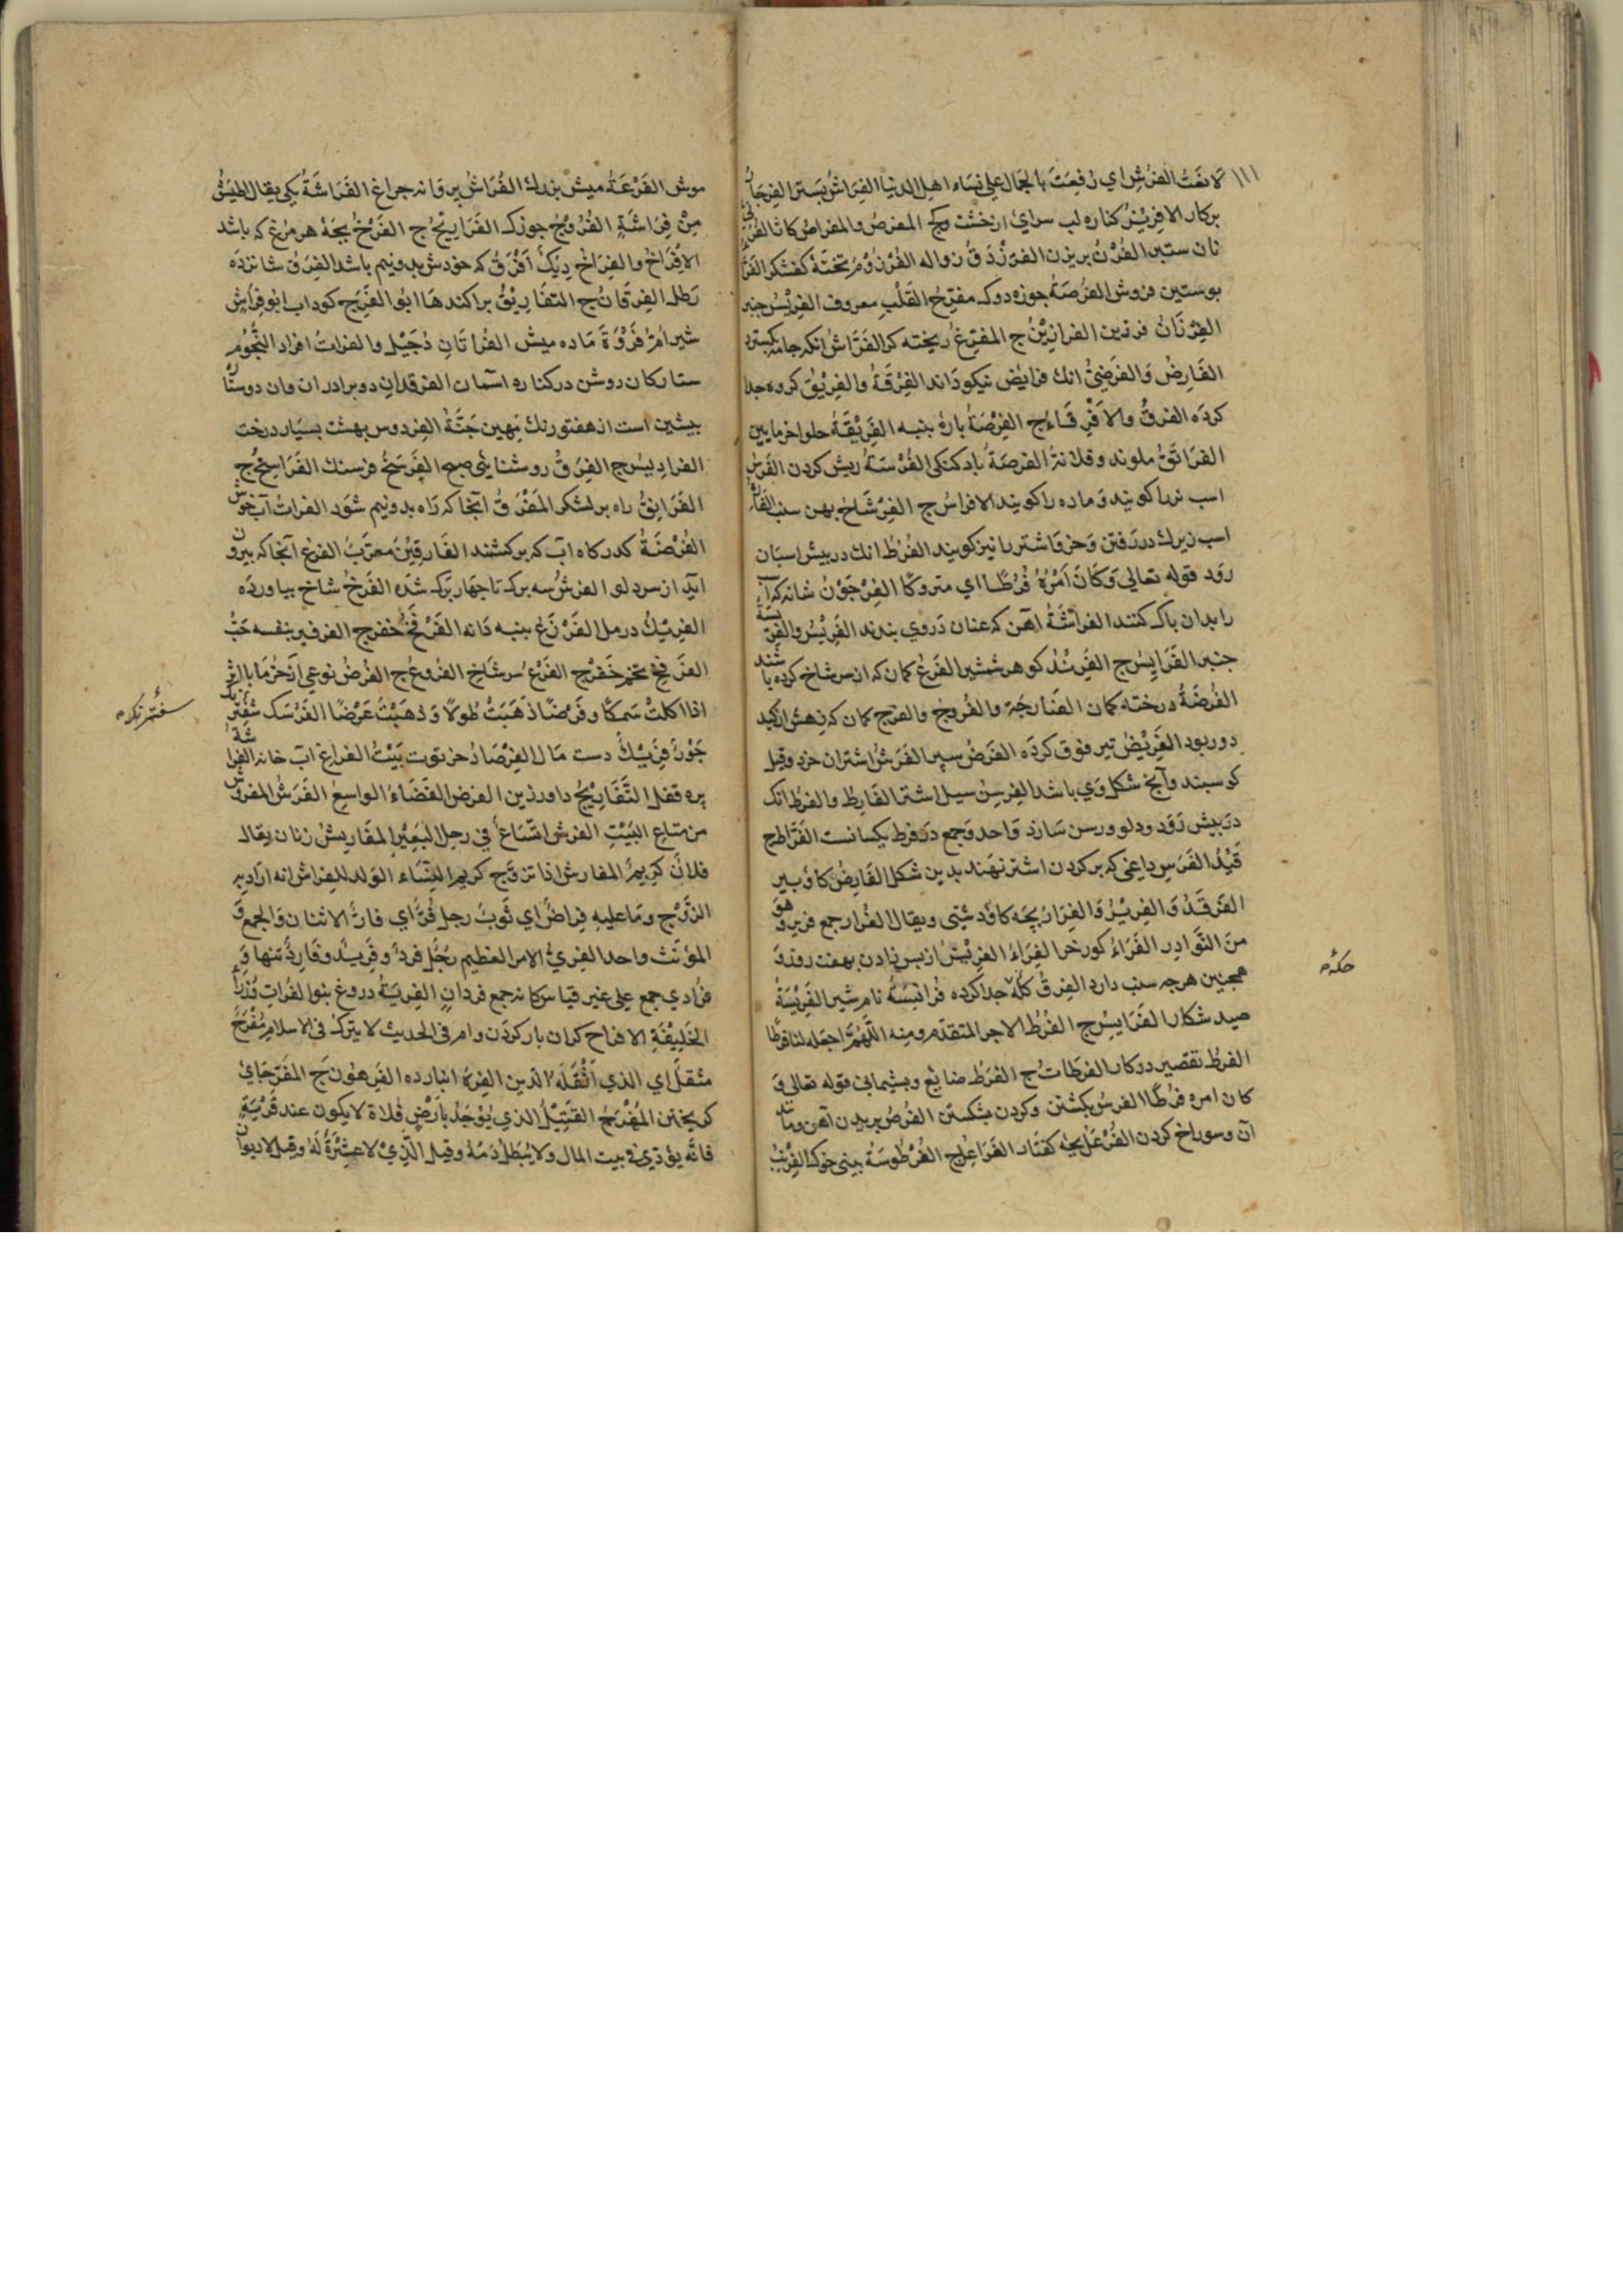 ١١١
لانغت الفرش اي رفعت بالجمال علي نساء اهل الدنيا الفراش بستر الفرجار
بركار الافريز كناره لب سراي از خشت وكج المفرص والمفراص كاثا الفرني
نان ستبر الفرن بريزن الفرزدق نواله الفرزوم تختة كفشكر الفرا
بوستين فروش الفرصة جوزه دوك مفرح القلب معروف الفريس جنبر
الفرزان فرزين الفرازين ج المفرغ ريخته كر الفراش انكه جامه كسترد
الفارض والفرضي انك فرايض نيكو داند الفرقة والفريق كروه جدا
كرده الفرق والافرقاء ج الفرصة بارۀ بنبه الفريقة حلوا خرمايين
الفرانق ملوند وقلانذ الفرصة باد كنكى الفرسة ريش كردن الفرس
اسب نر را كويند وماده را كويند الافراس ج الفرشاخ بهن سنب الفاره
اسب زيرك در رفتن وخر واشتر را نيز كويند الفرط انك در بيش اسبان
رود قوله تعالى وكان امره فرطا اي متروكا الفرجون شانه كه آن
را بدان باك كنند الفراشة آهن كه عنان در وي بندند الفريس والفرسة
جنبر الفرايس ج الفرند كوهر شمشير الفرع كمان كه از سر شاخ كرده باشند
الفرضة درخته كمان الفارجة والفروج والفرج كمان كه زهش از كبد
دور بود الفريض تير فوق كرده الفرض سپر الفرش اشتران خرد وقيل
كوسبند وآنج شكل وي باشد الفرسن سيل اشتر الفارط والفرط انك
در بيش رود ودلو ورسن سازد واحد وجمع در فرط يكسانست الفراط ج
قيد الفرس داغي كه بر كردن اشتر نهند بدين شكل الفارض كاو بير
الفرقد والفرير والفرار بچه كاو دشتى ويقال الفرار جمع فرير وهو
من النوادر الفراء كورخر الفراء الفريش از بس زادن بهفت روز و
همچنين هرجه سنب دارد الفرق كله جدا كرده فرانسة نام شير الفريسة
صيد شكار الفرايس ج الفرط الاجر المتقدم ومنه اللهم اجعله لنا فرطا
الفرط تقصير در كار الفرطات ج الفرط ضايع وبشيمانى قوله تعالى و
كان امره فرطا الفرس بكشتن وكردن بشكستن الفرص بريدن آهن ومانند
آن وسوراخ كردن الفرعل بچه كفتار الفراعل ج الفرطوسة بينى خوك الفرنب
حكه
موش الفرعة ميش بزرك الفراش پروانه جراغ الفراشة يكى يقال اطيش
من فراشة الفروج جوزك الفراريج ج الفرخ بچۀ هر مرغ كه باشد
الافراخ والفراخ ديك افرق كه خودش بدونيم باشد الفرق شانزده
رطل الفرقان ج التفاريق براكندها ابو الفرج كوداب ابو فراش
شير ام فروة ماده ميش الفراتان دجيل والفرات افراد النجوم
ستاركان روشن در كناره اسمان الفرقدان دو برادران وان دوستا
بيشين است از هفتورنك نهين جنة الفردوس بهشت بسيار درخت
الفراديس ج الفرق روشنايى صبح الفرسخ فرسنك الفراسخ ج
الفرانق راه بر لشكر المفرق آنجا كه راه بدونيم شود الفرات آب خوش
الفرضة كدركاه آب كه بر كشند الفارقين معرب الفرغ آنجا كه بيرون
آيد از سر دلو الفرش سه برك تا جهار برك شده الفرخ شاخ بياورده
الفريك درمل الفرزع بنبه دانه الفرفخ خفرج الفرفير بنفسه حب
الفرفخ تخم خفرج الفرع سر شاخ الفروع ج الفرض نوعى از خرما بالبثر
اذا اكلت سمكا وفرضا ذهبت طولا وذهبت عرضا الفرسك شفترنك
جوز فريك دست مال الفرصاد خرتوت بيت الفراغ آب خانه الفراشة
پره قفل التفاريج داورزين الفرض الفضاء الواسع الفرش المفروش
من متاع البيت الفرش اتساع في رجل البعير المفاريش زنان يقال
فلان كريم المفارش اذا تزوج كريم النساء الولد للفراش انه اراد به
الزوج وما عليه فراض اي ثوب رجل فر اي فار الاثنان والجمع و
المؤنث واحد الفري الامر العظيم رجل فرد وفريد وفارد تنها و
فرادي جمع على غير قياس كانه جمع فردان الفرية دروغ بنو الفرات وزراء
الخليفة الافراح كران بار كردن وام في الحديث لا يترك في الاسلام مفرح
مثقل اي الذي اثقله الدين الفره انبارده الفرهون ج المفرجاى
كريختن المفرج القتيل الذي يوجد بارض فلاة لا يكون عند قرية
فانه يؤدي في بيت المال ولا يبطل دمه وقيل الذي لا عشيرة له وقيل لا ديوان
سفترنكه